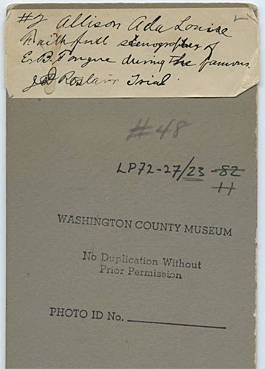 #2 Allison Ada Louise
Faithfull stenographer of
E. B. Tongue during the famous
J. Roslair Trial
#48
LP72-27/23 -82
11
WASHINGTON COUNTY MUSEUM
No Duplication Without
Prior Permission
PHOTO ID No.